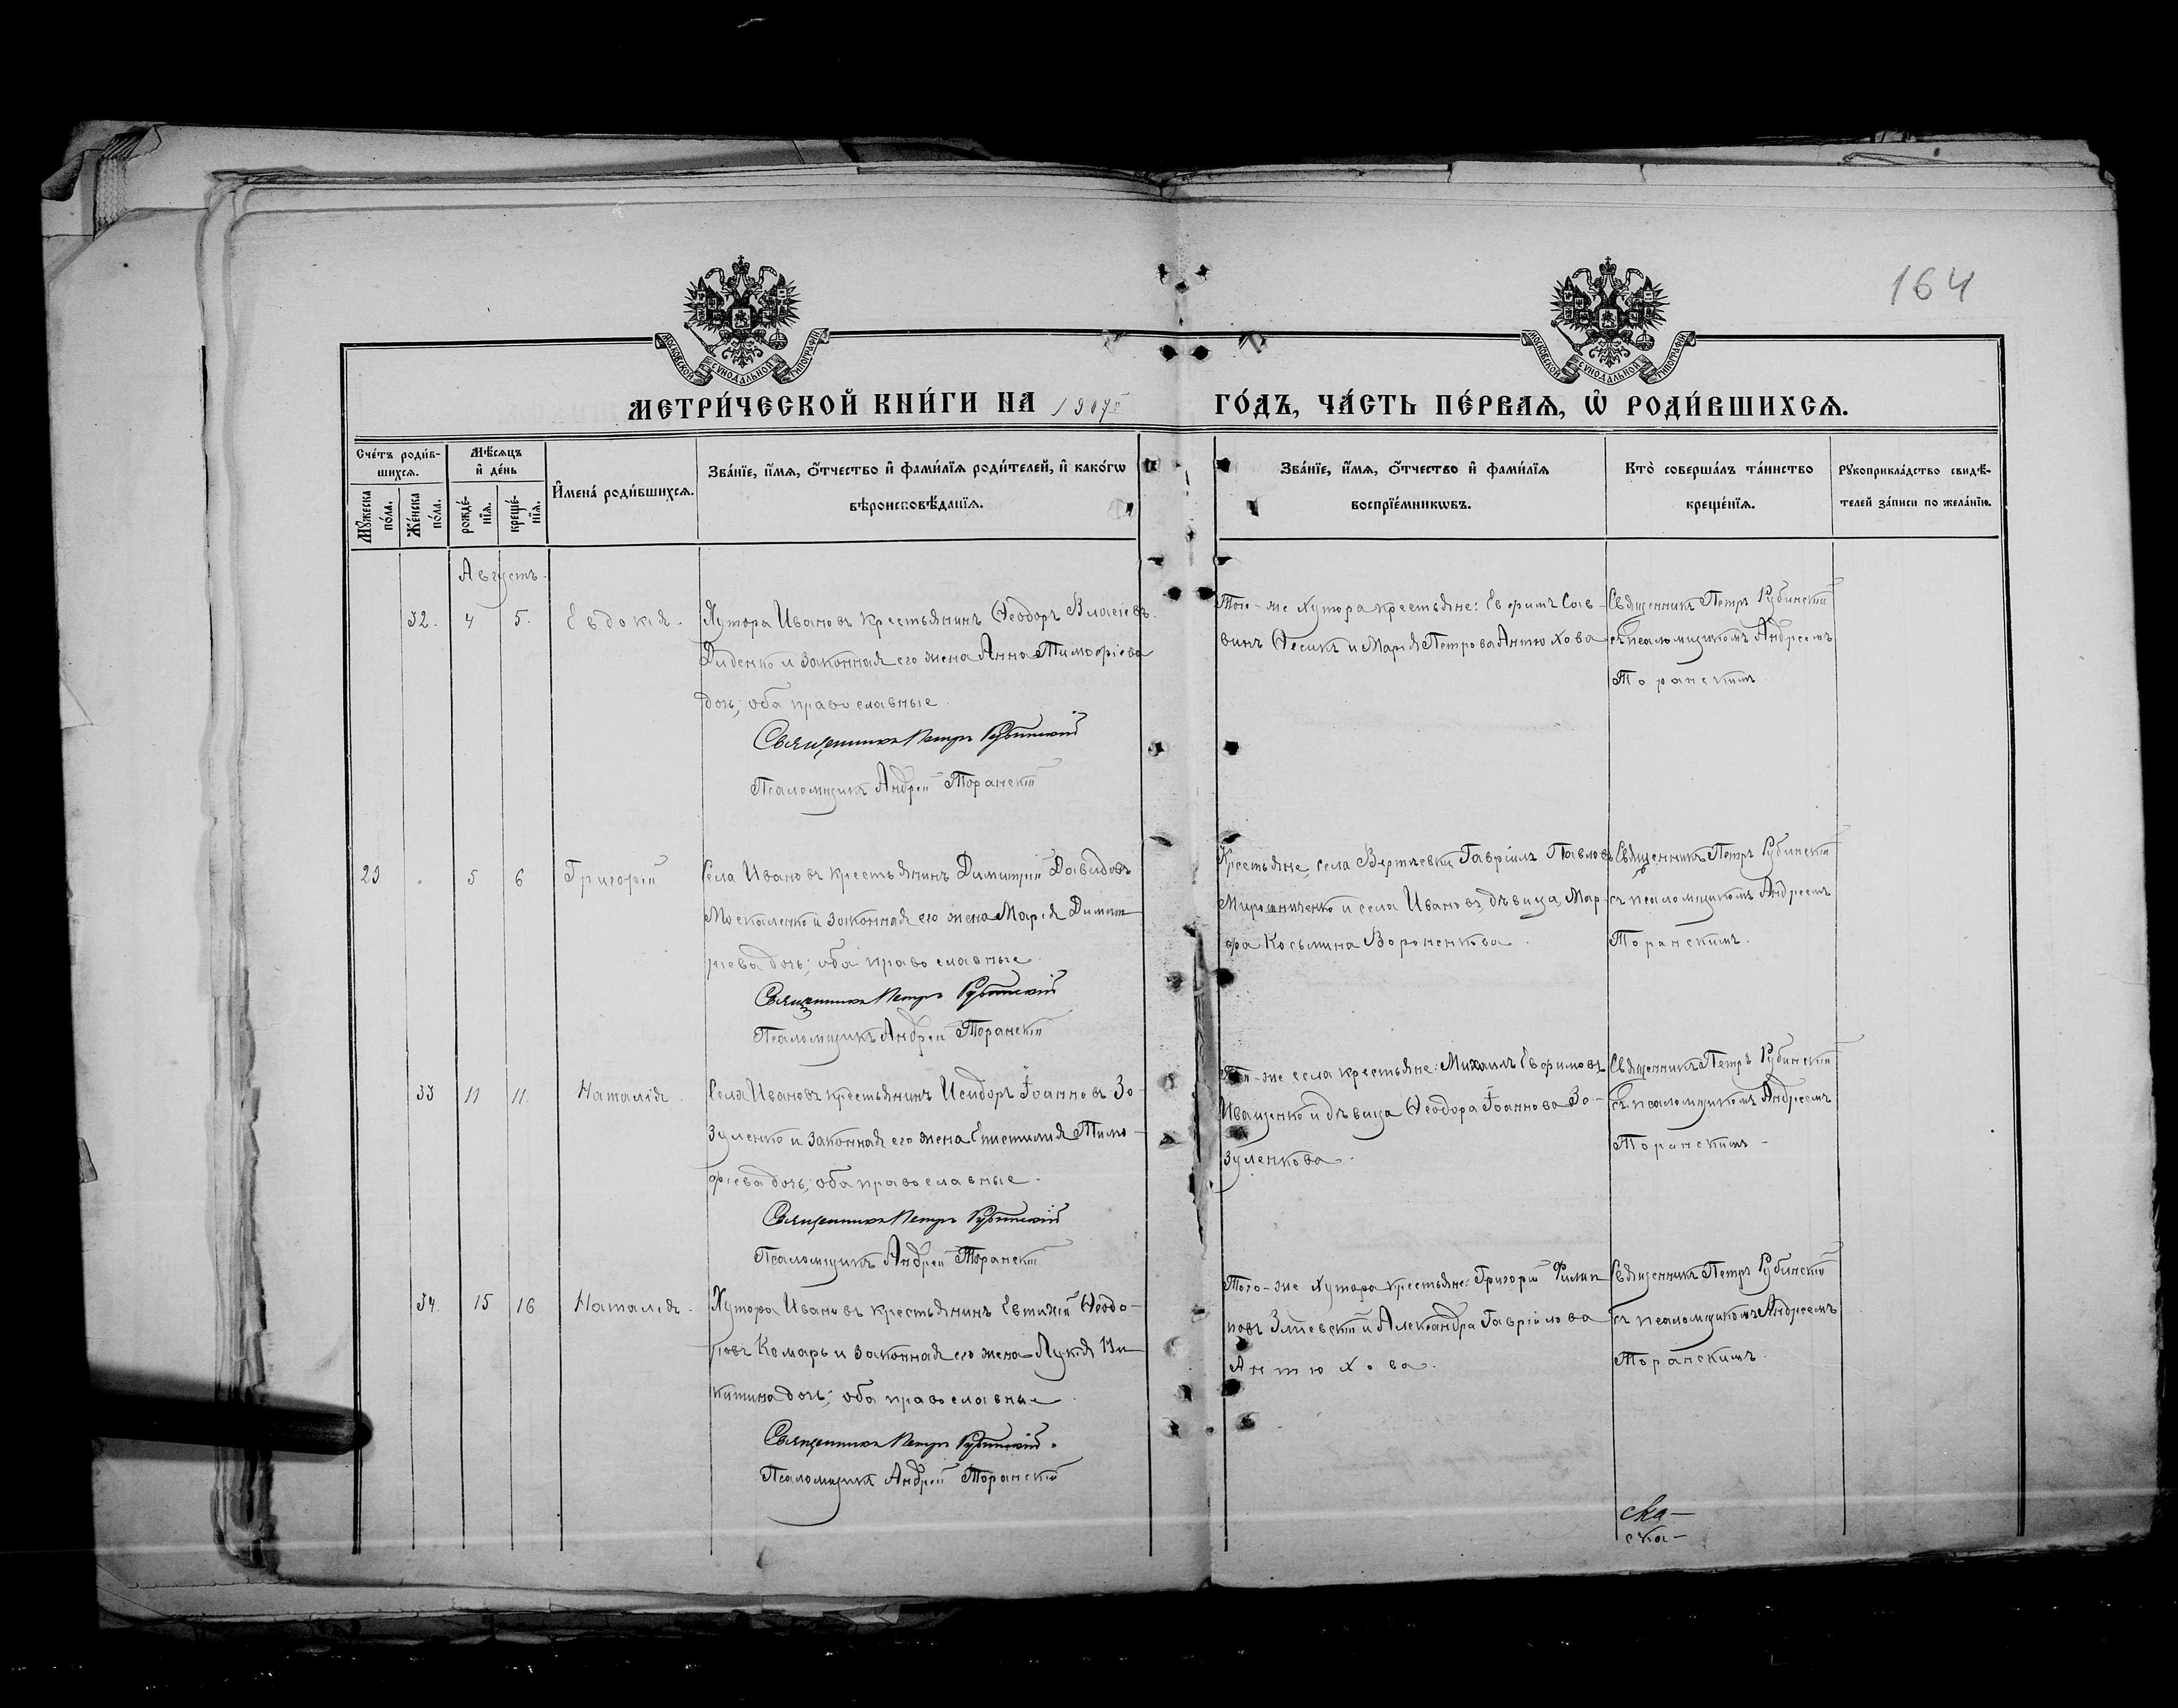 164
МОСКОВСКОЙ СѴНОДАЛЬНОЙ ТИПОГРАФІИ
МОСКОВСКОЙ СѴНОДАЛЬНОЙ ТИПОГРАФІИ
МЕТРИ́ЧЕСКОЙ КНИ́ГИ НА 1907й ГО́ДЪ, ЧА́СТЬ ПЕ́РВАЯ, Ѡ҆ РОДИ́ВШИХСЯ.
Сче́тъ роди́в-
шихся.
Мѹ́жеска по́ла.
Же́нска по́ла.
Мѣ́сяцъ
и҆ де́нь
рожде́-
нїя.
креще́-
нїя.
И҆мена́ роди́вшихся.
Зва́нїе, и҆́мя, ѻ҆́тчество и҆ фами́лїя роди́телей, и҆ како́гѡ
вѣроисповѣ́данїя.
Зва́нїе, и҆́мя, ѻ҆́тчество и҆ фами́лїя
воспрїе́мникѡвъ.
Кто̀ соверша́лъ та́инство
креще́нїя.
Рѹкоприкла́дство свидѣ́-
телей за́писи по жела́нїю.
Августъ.
32. 4 5. Евдокія.
Хутора Ивановъ крестьянинъ Ѳеодоръ Власіевъ
Диденко и законная его жена Анна Тимофіева
дочь; оба православные.
Священникъ Петръ Рубинскій
Псаломщикъ Андрей Торанскій
Того-же хутора крестьяне: Ефримъ Сав-
винъ Ѳесикъ и Марія Петрова Антюхова
Священникъ Петръ Рубинскій
съ псаломщикомъ Андреемъ
Торанскимъ.
23 " 5 6 Григорій
Села Ивановъ крестьянинъ Димитрій Давидовъ
Москаленко и законная его жена Марія Димит-
ріева дочь; оба православные.
Священникъ Петръ Рубинскій
Псаломщикъ Андрей Торанскій
Крестьяне, села Вертіевки Гавріилъ Павловъ
Мирошниченко и села Ивановъ, дѣвица, Мар-
фа Косьмина Вороненкова.
Священникъ Петръ Рубинскій
съ псаломщикомъ Андреемъ
Торанскимъ.
33 11 11. Наталія.
Села Ивановъ крестьянинъ Исидоръ Іоанновъ Зо-
зуленко и законная его жена Епистимія Тимо-
фіева дочь; оба православные.
Священникъ Петръ Рубинскій
Псаломщикъ Андрей Торанскій
Того-же села крестьяне: Михаилъ Евфимовъ
Иващенко и дѣвица Ѳеодора Іоаннова Зо-
зуленкова.
Священникъ Петръ Рубинскій
съ псаломщикомъ Андреемъ
Торанскимъ.
34. 15 16 Наталія.
Хутора Ивановъ крестьянинъ Евтихій Ѳеодо-
ровъ Комарь и законная его жена Лукія Ни-
китина дочь; оба православные.
Священникъ Петръ Рубинскій.
Псаломщикъ Андрей Торанскій
Того-же хутора крестьяне: Григорій Филип-
повъ Зміевскій и Александра Гавріилова
Антюхова.
Священникъ Петръ Рубинскій
съ псаломщикомъ Андреемъ
Торанскимъ.
ска-
ска-